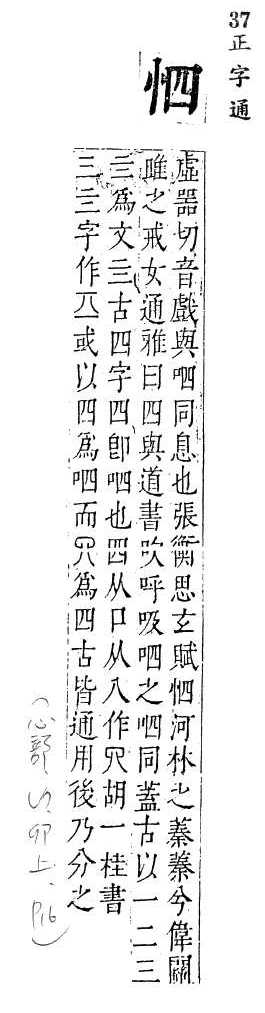 37 正字通
怬
虛器切音戲與呬同息也張衡思玄賦怬河林之蓁蓁兮偉關
雎之戒女通雅曰四與道書吹呼吸呬之呬同蓋古以一二三
亖爲文亖古四字四卽呬也四从口从八作𦉭胡一桂書
三亖字作或以四爲呬而𦉭爲四古皆通用後乃分之
(心部 卯上、P16)